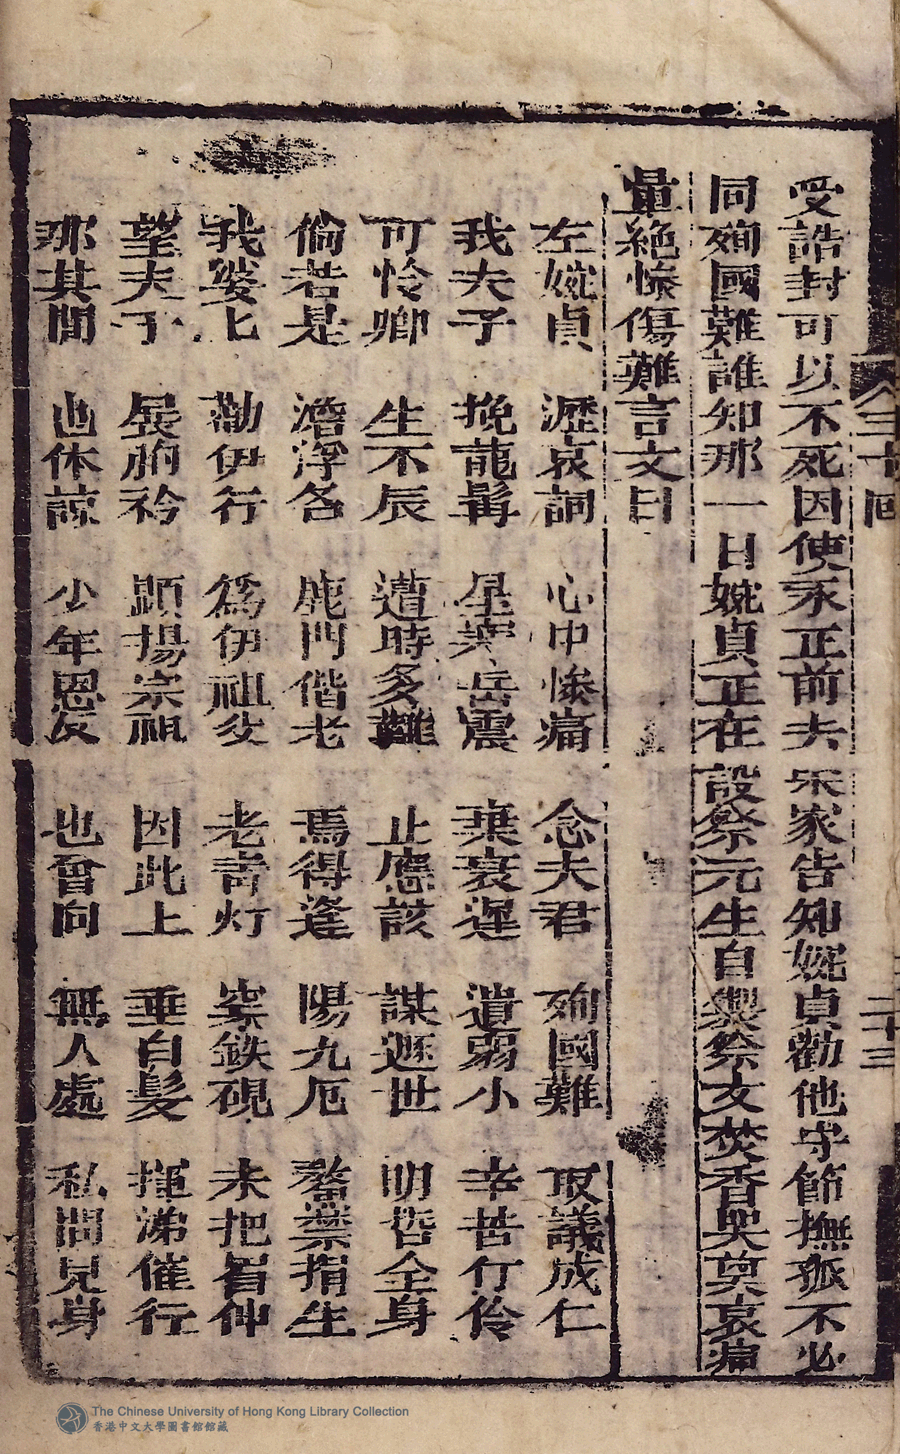 卅回
二十三
受誥封可以不死因使永正前去宋家告知婉貞勸他守節撫孤不必
同殉國難誰知那一日婉貞正在設祭元生自製祭文焚香哭奠哀痛
暈絶慘傷難言文曰
左婉貞 瀝哀詞 心中慘痛 念夫君 殉國難 取議成仁
我夫子 挽龍髯 星實岳震 棄衰遲 遺弱小 辛苦仃伶
可怜卿 生不辰 遭時多難 止應該 謀遯世 明哲全身
倫若是 澹浮名 鹿門偕老 焉得逢 陽九厄 鰲禁捐生
我婆匕 勸伊行 爲伊祖父 老靑灯 案鉄硯 未把眉伸
望夫子 展胸衿 顕揚宗祖 因此上 垂白髮 揮涕催行
那其間 也休諒 少年恩愛 也曾向 無人處 私問兒身
The Chinese University of Hong Kong Library Collection
香港中文大學圖書館館藏